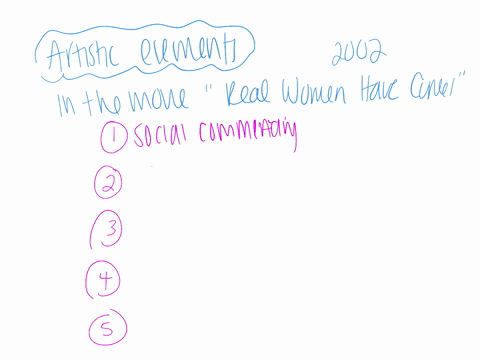 Artistic elements 2002
In the movie "Real Women Have Curves"
1 social commentary
2
3
4
5